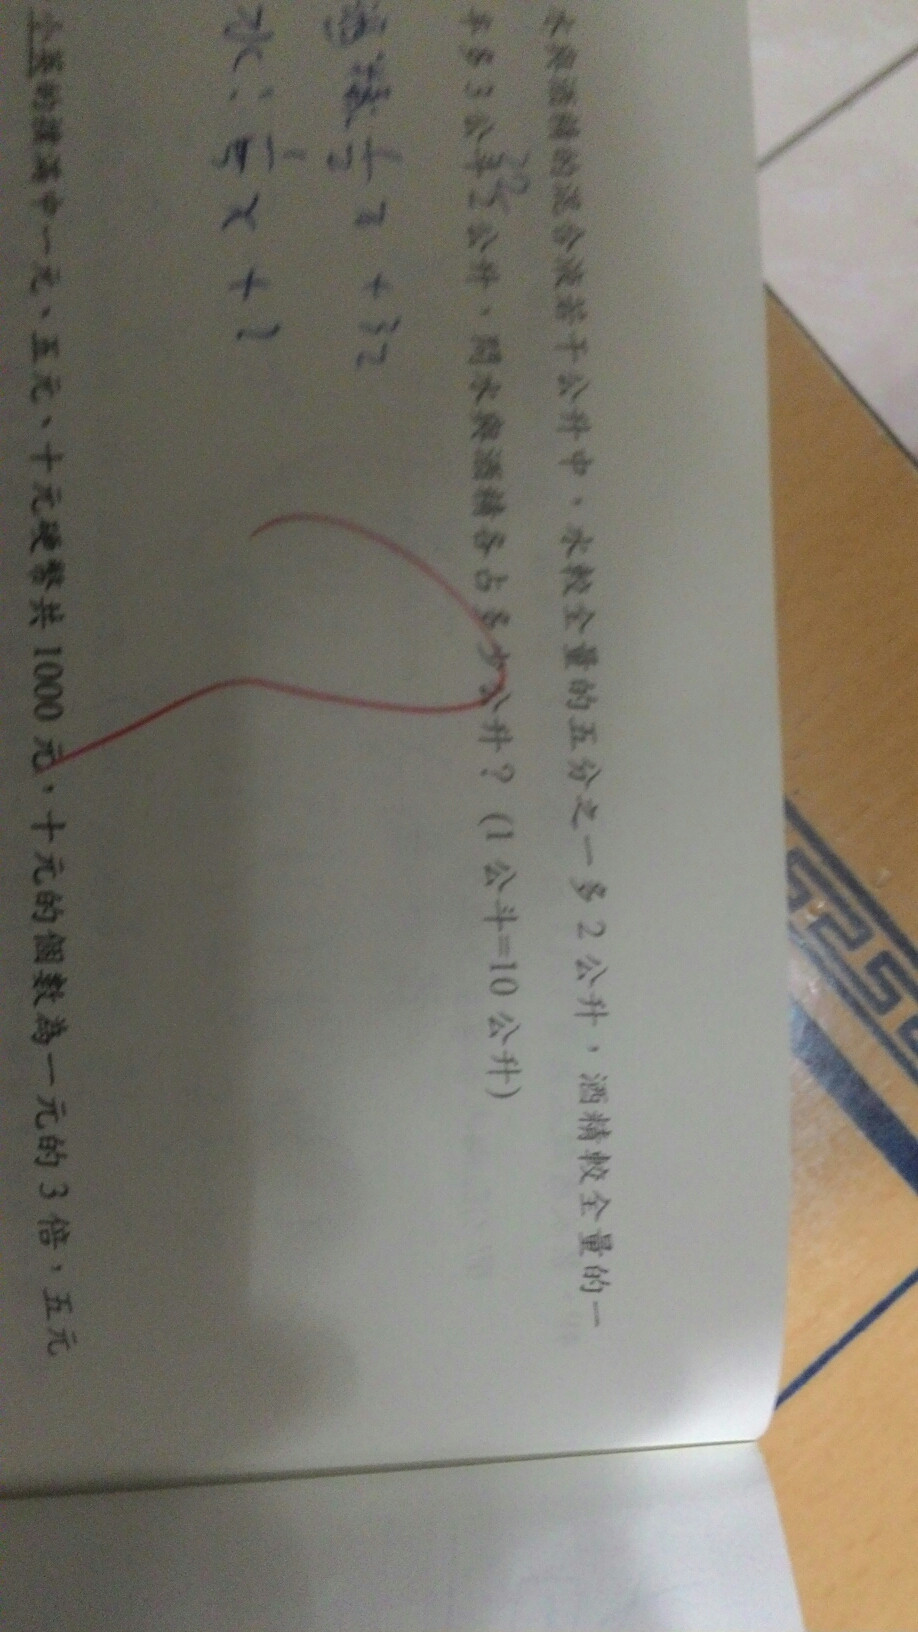 水與酒精的混合液若干公升中，水較全量的五分之一多 2 公升，酒精較全量的一
半多 3 公斗 2 公升，問水與酒精各占多少公升？(1 公斗=10 公升)
32
酒精 x + 32
水： x + 2
的撲滿中一元、五元、十元硬幣共 1000 元，十元的個數為一元的 3 倍，五元